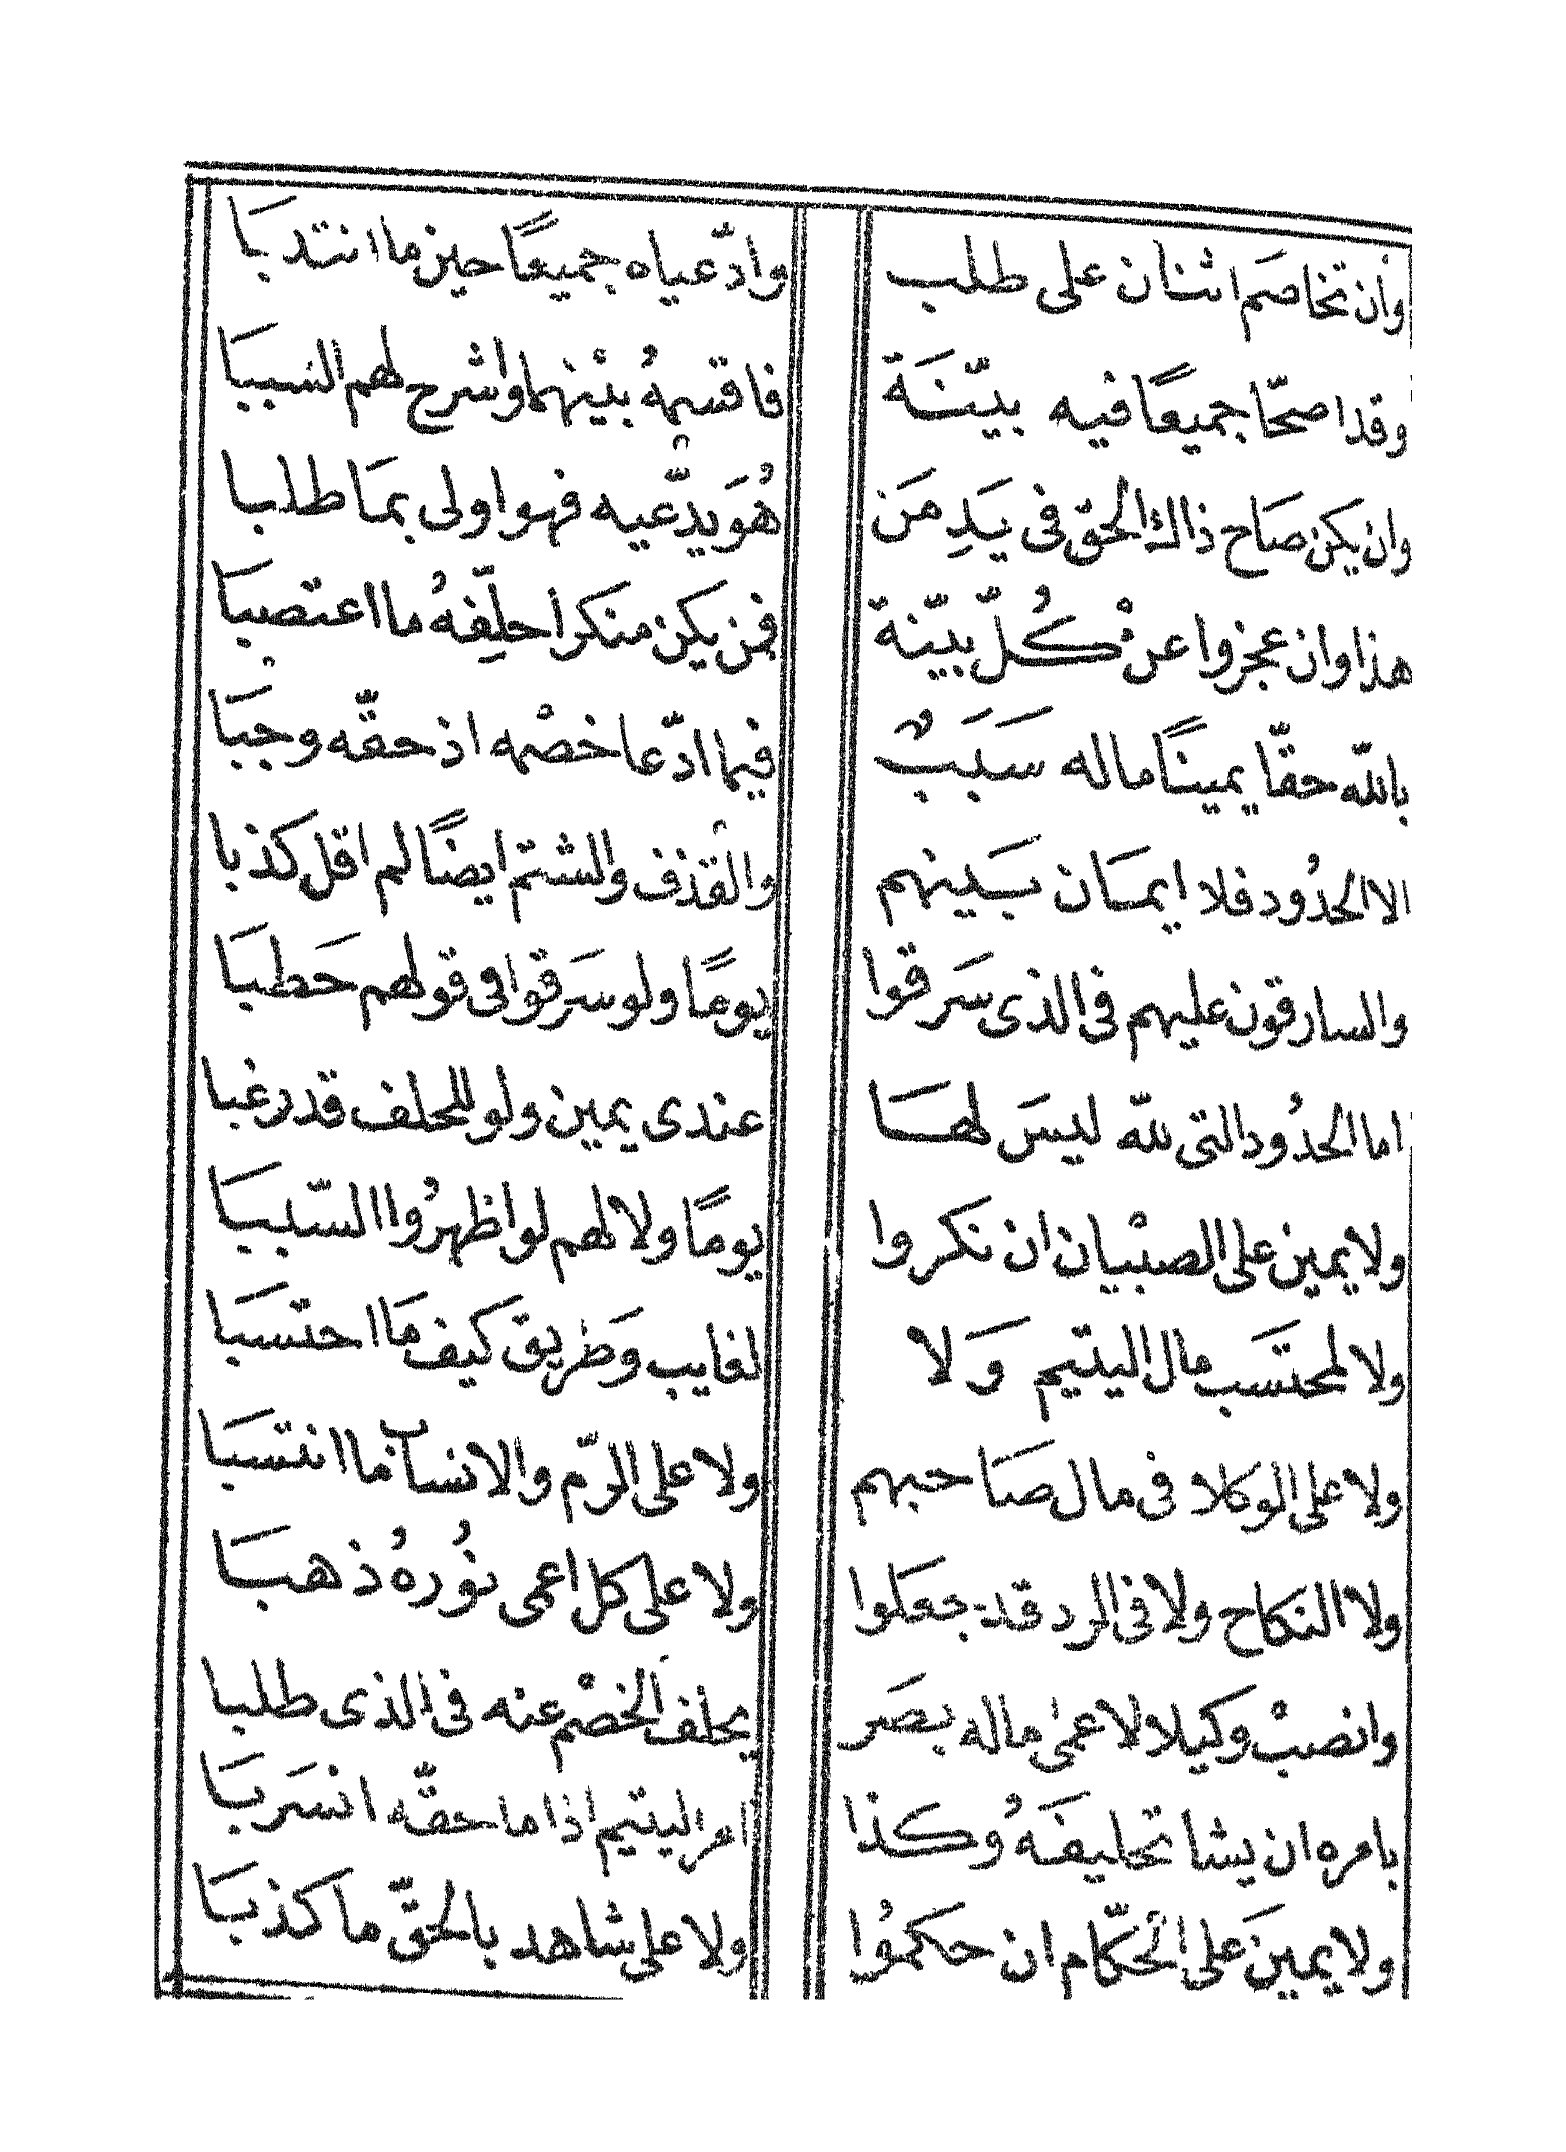 وان تخاصَم اثنان على طلب
وادّعياه جميعًا حين ما انتدبَا
وقد اصحّا جميعًا فيه بيّنَة
فاقسمهُ بينهما واشرح لهم السببَا
وان يكن صَاح ذاك الحق في يَدِ مَن
هُوَ يدّعيه فهو اولى بمَا طلبا
هذا وان عجزوا عن كُلّ بيّنة
فمن يكن منكرا حلِّفهُ ما اعتصبَا
بالله حقّا يمينًا ما له سَبَبٌ
فيما ادّعا خصْمه اذ حقّه وجبَا
الا الحدُود فلا ايمَان بَينهم
والقذف والشتم ايضًا لم اقل كذبا
والسارقون عليهم في الذى سَرقوا
يومًا ولو سَرقوا في قولهم حَطبَا
اما الحدُود التى لله ليسَ لهَا
عندى يمين ولو للحلف قد رغبا
ولا يمين على الصبْيان ان نكروا
يومًا ولا لهم لو اظهرُوا السّببَا
ولا لمحتسَب مال اليتيم وَلا
لغايب وَطريق كيف مَا احتسبَا
ولا على الوكلا في مال صَاحبهم
ولا على الرّم والانساب ما انتسبَا
ولا النكاح ولا في الرد قد جعَلوا
ولا على كل اعمى نوُرهُ ذهبَا
وانصبْ وكيلا لاعمى ما له بصَر
يحلف الخصْم عنه في الذى طلبا
بامره ان يشا تحليفَهُ وكذا
امر اليتيم اذا ما حقّه انسَربَا
ولا يمينَ على الحكّام ان حكمُوا
ولا على شاهد بالحقّ ما كذبَا